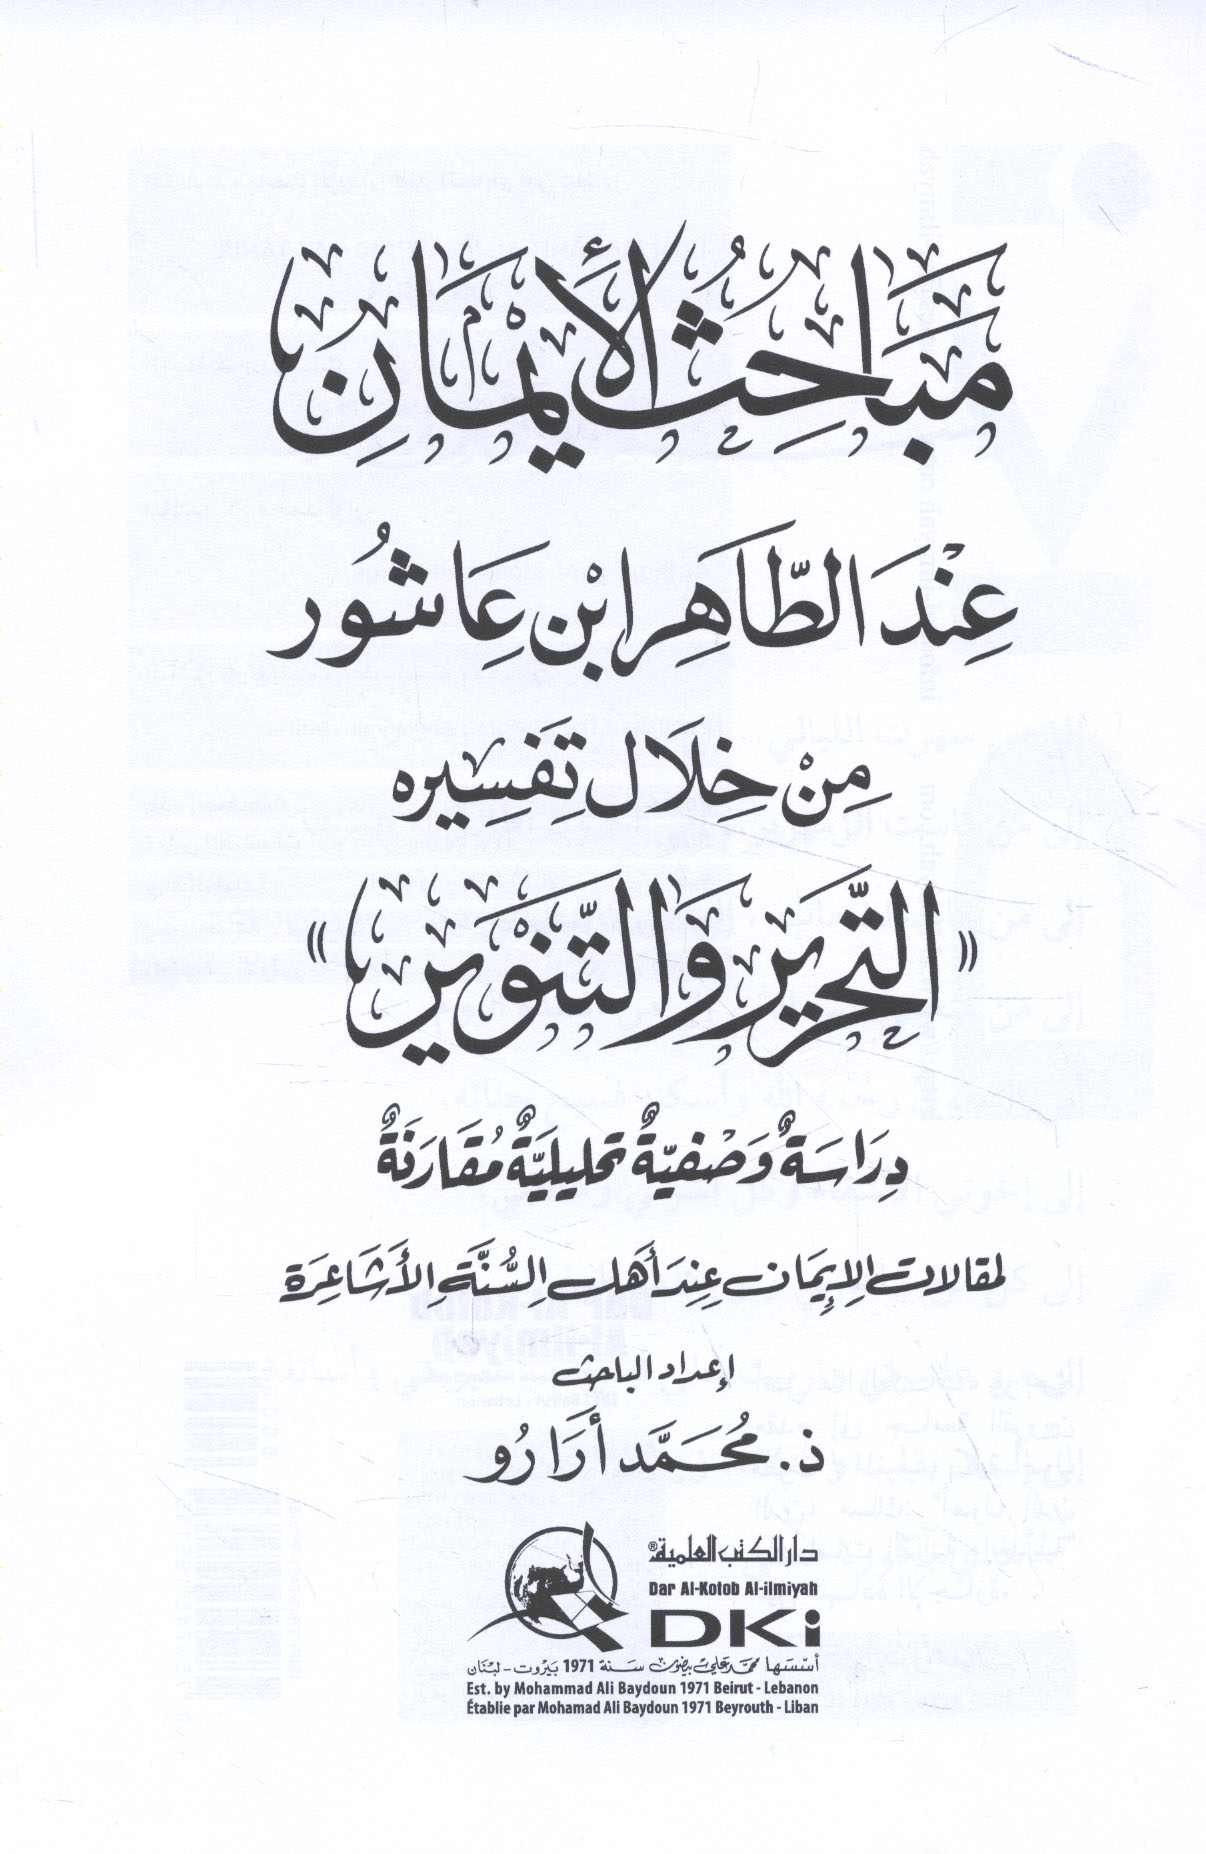 مَبَاحِثُ الأَيْمَانِ
عِنْدَ الطَّاهِرِ ابْنِ عَاشُور
مِنْ خِلَال تَفْسِيره
«التَّحْرِيرِ وَالتَّنْوِيرِ»
دِرَاسَةٌ وَصْفِيَّةٌ تحليليَّةٌ مُقَارَنَةٌ
لمقالات الإِيمَان عِندَ أَهل السُّنَّةِ الأَشَاعِرَة
إعداد الباحث
ذ. مُحَمَّد أَرَارُو
دار الكتب العلمية®
Dar Al-Kotob Al-ilmiyah
DKi
أسّسَها محمّد علي بيضون سَنة 1971 بَيروت - لبْنَان
Est. by Mohammad Ali Baydoun 1971 Beirut - Lebanon
Établie par Mohamad Ali Baydoun 1971 Beyrouth - Liban